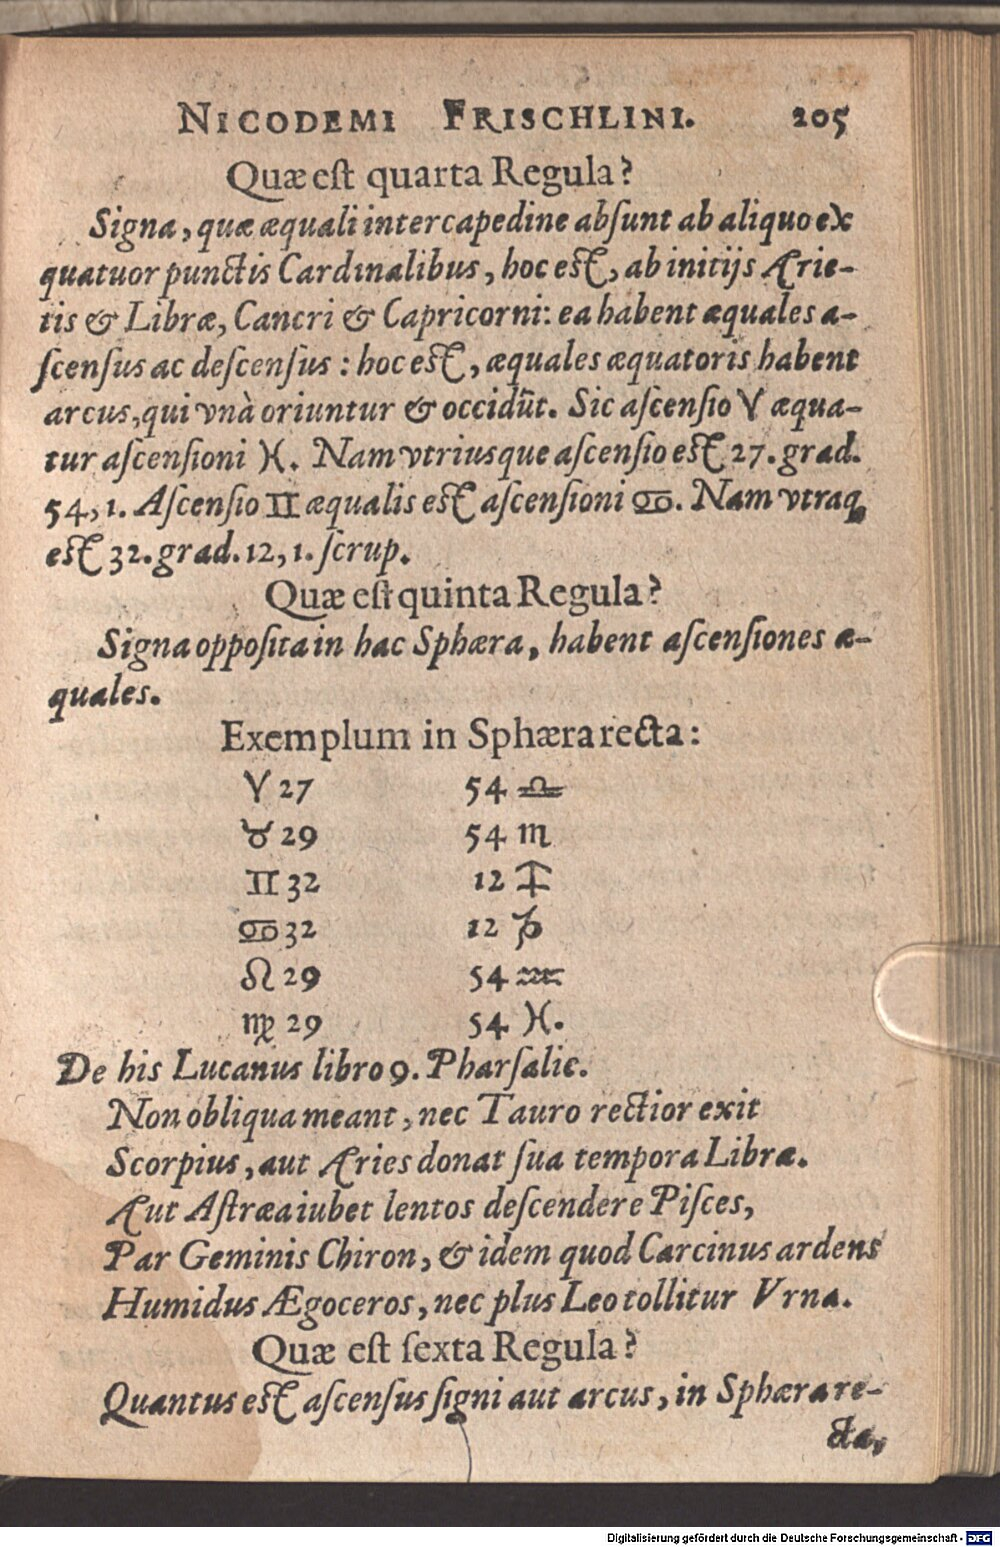 NICODEMI FRISCHLINI. 205
Quæ eſt quarta Regula?
Signa, quæ æquali intercapedine abſunt ab aliquo ex
quatuor punctis Cardinalibus, hoc eſt, ab initijs Arie-
tis & Libræ, Cancri & Capricorni: ea habent æquales a-
ſcenſus ac deſcenſus: hoc eſt, æquales æquatoris habent
arcus, qui vnà oriuntur & occidũt. Sic aſcenſio ♈ æqua-
tur aſcenſioni ♓. Nam vtriusque aſcenſio eſt 27. grad.
54, 1. Aſcenſio ♊ æqualis eſt aſcenſioni ♋. Nam vtraq́
eſt 32. grad. 12, 1. ſcrup.
Quæ eſt quinta Regula?
Signa oppoſita in hac Sphæra, habent aſcenſiones æ-
quales.
Exemplum in Sphæra recta:
♈ 27 54 ♎
♉ 29 54 ♏
♊ 32 12 ♐
♋ 32 12 ♑
♌ 29 54 ♒
♍ 29 54 ♓.
De his Lucanus libro 9. Pharſalic.
Non obliqua meant, nec Tauro rectior exit
Scorpius, aut Aries donat ſua tempora Libræ.
Aut Aſtræa iubet lentos deſcendere Piſces,
Par Geminis Chiron, & idem quod Carcinus ardens
Humidus Ægoceros, nec plus Leo tollitur Vrna.
Quæ eſt ſexta Regula?
Quantus eſt aſcenſus ſigni aut arcus, in Sphæra re-
cta,
Digitalisierung gefördert durch die Deutsche Forschungsgemeinschaft - DFG